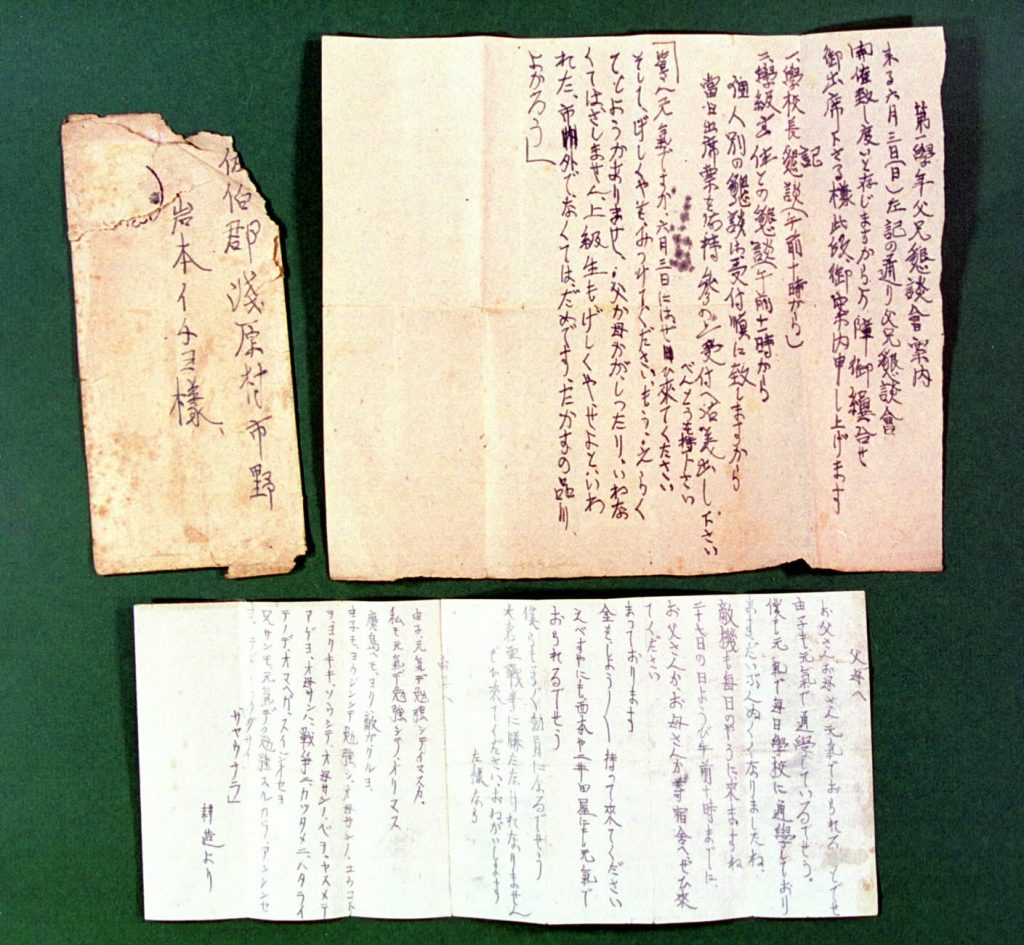 佐伯郡淺原村市野
岩本イチヨ様
第一學年父兄懇談會案内
来る六月三日(日)左記の通り父兄懇談會
開催致し度いと存じますから万障御繰合せ
御出席下さる様此段御案内申し上げます
記
一、學校長懇談(午前十時から)
二、學級主任との懇談(午前十一時から
個人別の懇談は受付順に致しますから
當日出席票を御持参の上受付へ御差出し下さい
べんとうを持下さい
元氣ですか、六月三日にはぜひ來てください
そして、げしくやをみつけてください、もう、えらく
てしようがありません、父か母かがしつたり、いねな
くてはざしません上級生もげしくやせよといわ
れた、市内外でなくてはだめです、たかすの品川、
よかろう」
父母へ
お父さんお母さん元氣でおられることでせ
由子も元氣で通學しているでせう。
僕も元氣で毎日學校に通學しており
ますだいぶんぬくくなりましたね、
敵機も毎日のやうに來ますね
二十七日の日ようび午前十時までに、
お父さんかお母さんが寄宿舎へぜひ來
てください
まつております
金をしよう〱持つて來てください
えべすやにも西本や二井田屋にも元氣で
おられるでせう
僕らももうすぐ動員になるでせう
大東亜戰爭に勝たなければなりません
ぜひ來てください、おねがいします
左様なら
由子へ
由子元氣デ勉強シテイマスカ。
私モ元氣デ勉強シテオリマス
廣島ヘモ、ヨク敵ガクルヨ、
由子モ、ヨウジンデ勉強シ、オ母サンノ、ユウコト
ヲヨクキキ、ソウシテ、オ母サンノ、ベヨ、ヤスメテ
アゲヨ、オ母サンハ、戰爭ニ、カツタメニ、ハタライ
テイデ、オマヘガ、スイジオセヨ
兄サンモ、元氣デ勉強スルカラ、アンシンセ
サヤウナラ」
耕造より